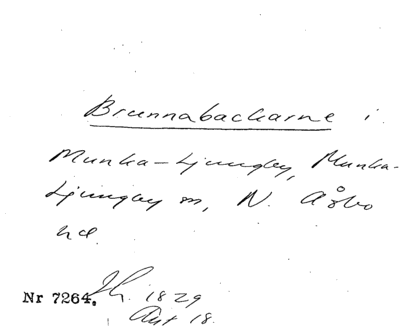 Brunnabackarne i
Munka-Ljungby, Munka-
Ljungby sn, N. Åsbo
hd.
Nr 7264. 1829
Akt 18.